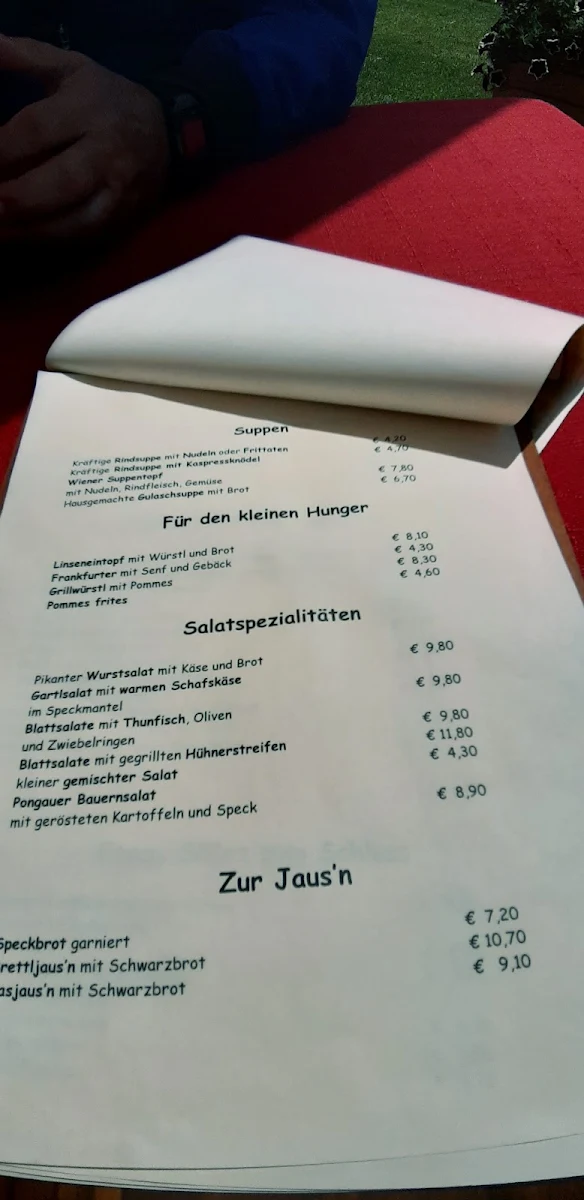 Suppen
Kräftige Rindsuppe mit Nudeln oder Frittaten € 4,20
Kräftige Rindsuppe mit Kaspressknödel € 4,70
Wiener Suppentopf
mit Nudeln, Rindfleisch, Gemüse € 7,80
Hausgemachte Gulaschsuppe mit Brot € 6,70
Für den kleinen Hunger
Linseneintopf mit Würstl und Brot € 8,10
Frankfurter mit Senf und Gebäck € 4,30
Grillwürstl mit Pommes € 8,30
Pommes frites € 4,60
Salatspezialitäten
Pikanter Wurstsalat mit Käse und Brot € 9,80
Gartlsalat mit warmen Schafskäse
im Speckmantel € 9,80
Blattsalate mit Thunfisch, Oliven
und Zwiebelringen € 9,80
Blattsalate mit gegrillten Hühnerstreifen € 11,80
kleiner gemischter Salat € 4,30
Pongauer Bauernsalat
mit gerösteten Kartoffeln und Speck € 8,90
Zur Jaus'n
Speckbrot garniert € 7,20
rettljaus'n mit Schwarzbrot € 10,70
asjaus'n mit Schwarzbrot € 9,10